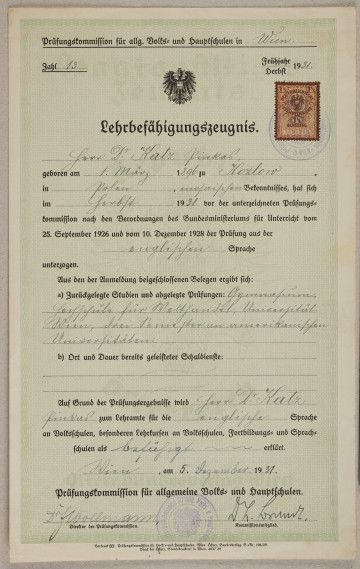 Prüfungskommission für allg. Volks- und Hauptschulen in Wien
Zahl 13
Frühjahr
Herbst 1931
Lehrbefähigungszeugnis.
Herr Dr Katz Pinkas
geboren am 1. März 1896 zu Kozlow,
in Polen, mosaischen Bekenntnisses, hat sich
im Herbst 1931 vor der unterzeichneten Prüfungs-
kommission nach den Verordnungen des Bundesministeriums für Unterricht vom
25. September 1926 und vom 10. Dezember 1928 der Prüfung aus der
englischen Sprache
unterzogen.
Aus den der Anmeldung beigeschlossenen Belegen ergibt sich:
a) Zurückgelegte Studien und abgelegte Prüfungen: Gymnasium,
Hochschule für Welthandel, Universität
Wien, drei Semester an amerikanischen
Universitäten.
b) Ort und Dauer bereits geleisteter Schuldienste:
Auf Grund der Prüfungsergebnisse wird Herr Dr Katz
Pinkas zum Lehramte für die englische Sprache
an Volksschulen, besonderen Lehrkursen an Volksschulen, Fortbildungs- und Sprach-
schulen als befähigt erklärt.
Wien, am 5. Dezember 1931.
Prüfungskommission für allgemeine Volks- und Hauptschulen.
Direktor der Prüfungskommission.
Kommissionsmitglied.